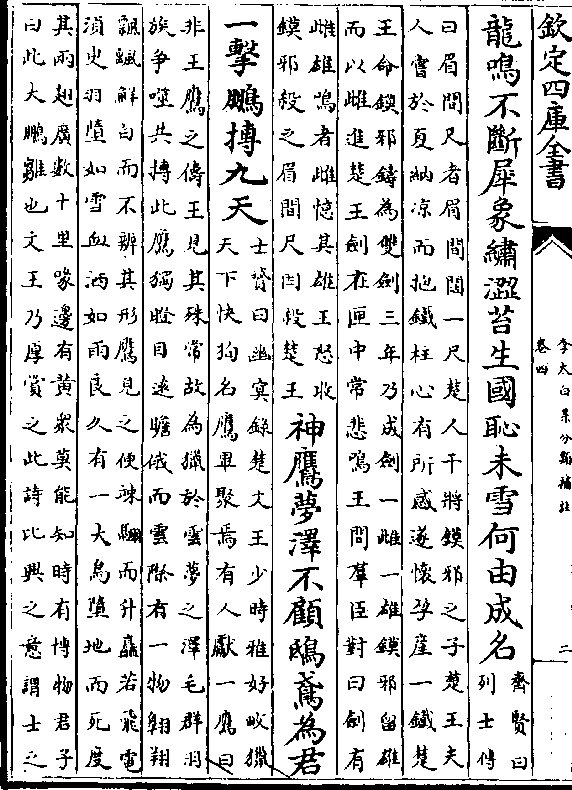 欽定四庫全書
李太白集分類補註
卷四
二
龍鳴不斷犀象繡澀苔生國恥未雪何由成名
齊賢曰
列士傳
曰眉間尺者眉間闊一尺楚人干將鏌邪之子楚王夫
人嘗於夏納凉而抱鐵柱心有所感遂懷孕産一鐵楚
王命鏌邪鑄為雙劍三年乃成劍一雌一雄鏌邪留雄
而以雌進楚王劍在匣中常悲鳴王問羣臣對曰劍有
雌雄鳴者雌憶其雄王怒收
鏌邪殺之眉間尺因殺楚王
神鷹夢澤不顧鴟鳶為君
一擊鵬摶九天
士贇曰幽冥錄楚文王少時雅好畋獵
天下快狗名鷹畢聚焉有人獻一鷹曰
非王鷹之儔王見其殊常故為獵於雲夢之澤毛群羽
族争噬共搏此鷹獨瞪目遠瞻俄而雲際有一物翱翔
飄飖鮮白而不辨其形鷹見之便竦翮而升矗若飛電
須臾羽墮如雪血洒如雨良久有一大鳥墮地而死度
其兩翅廣數十里喙邊有黄衆莫能知時有博物君子
曰此大鵬雛也文王乃厚賞之此詩比興之意謂士之